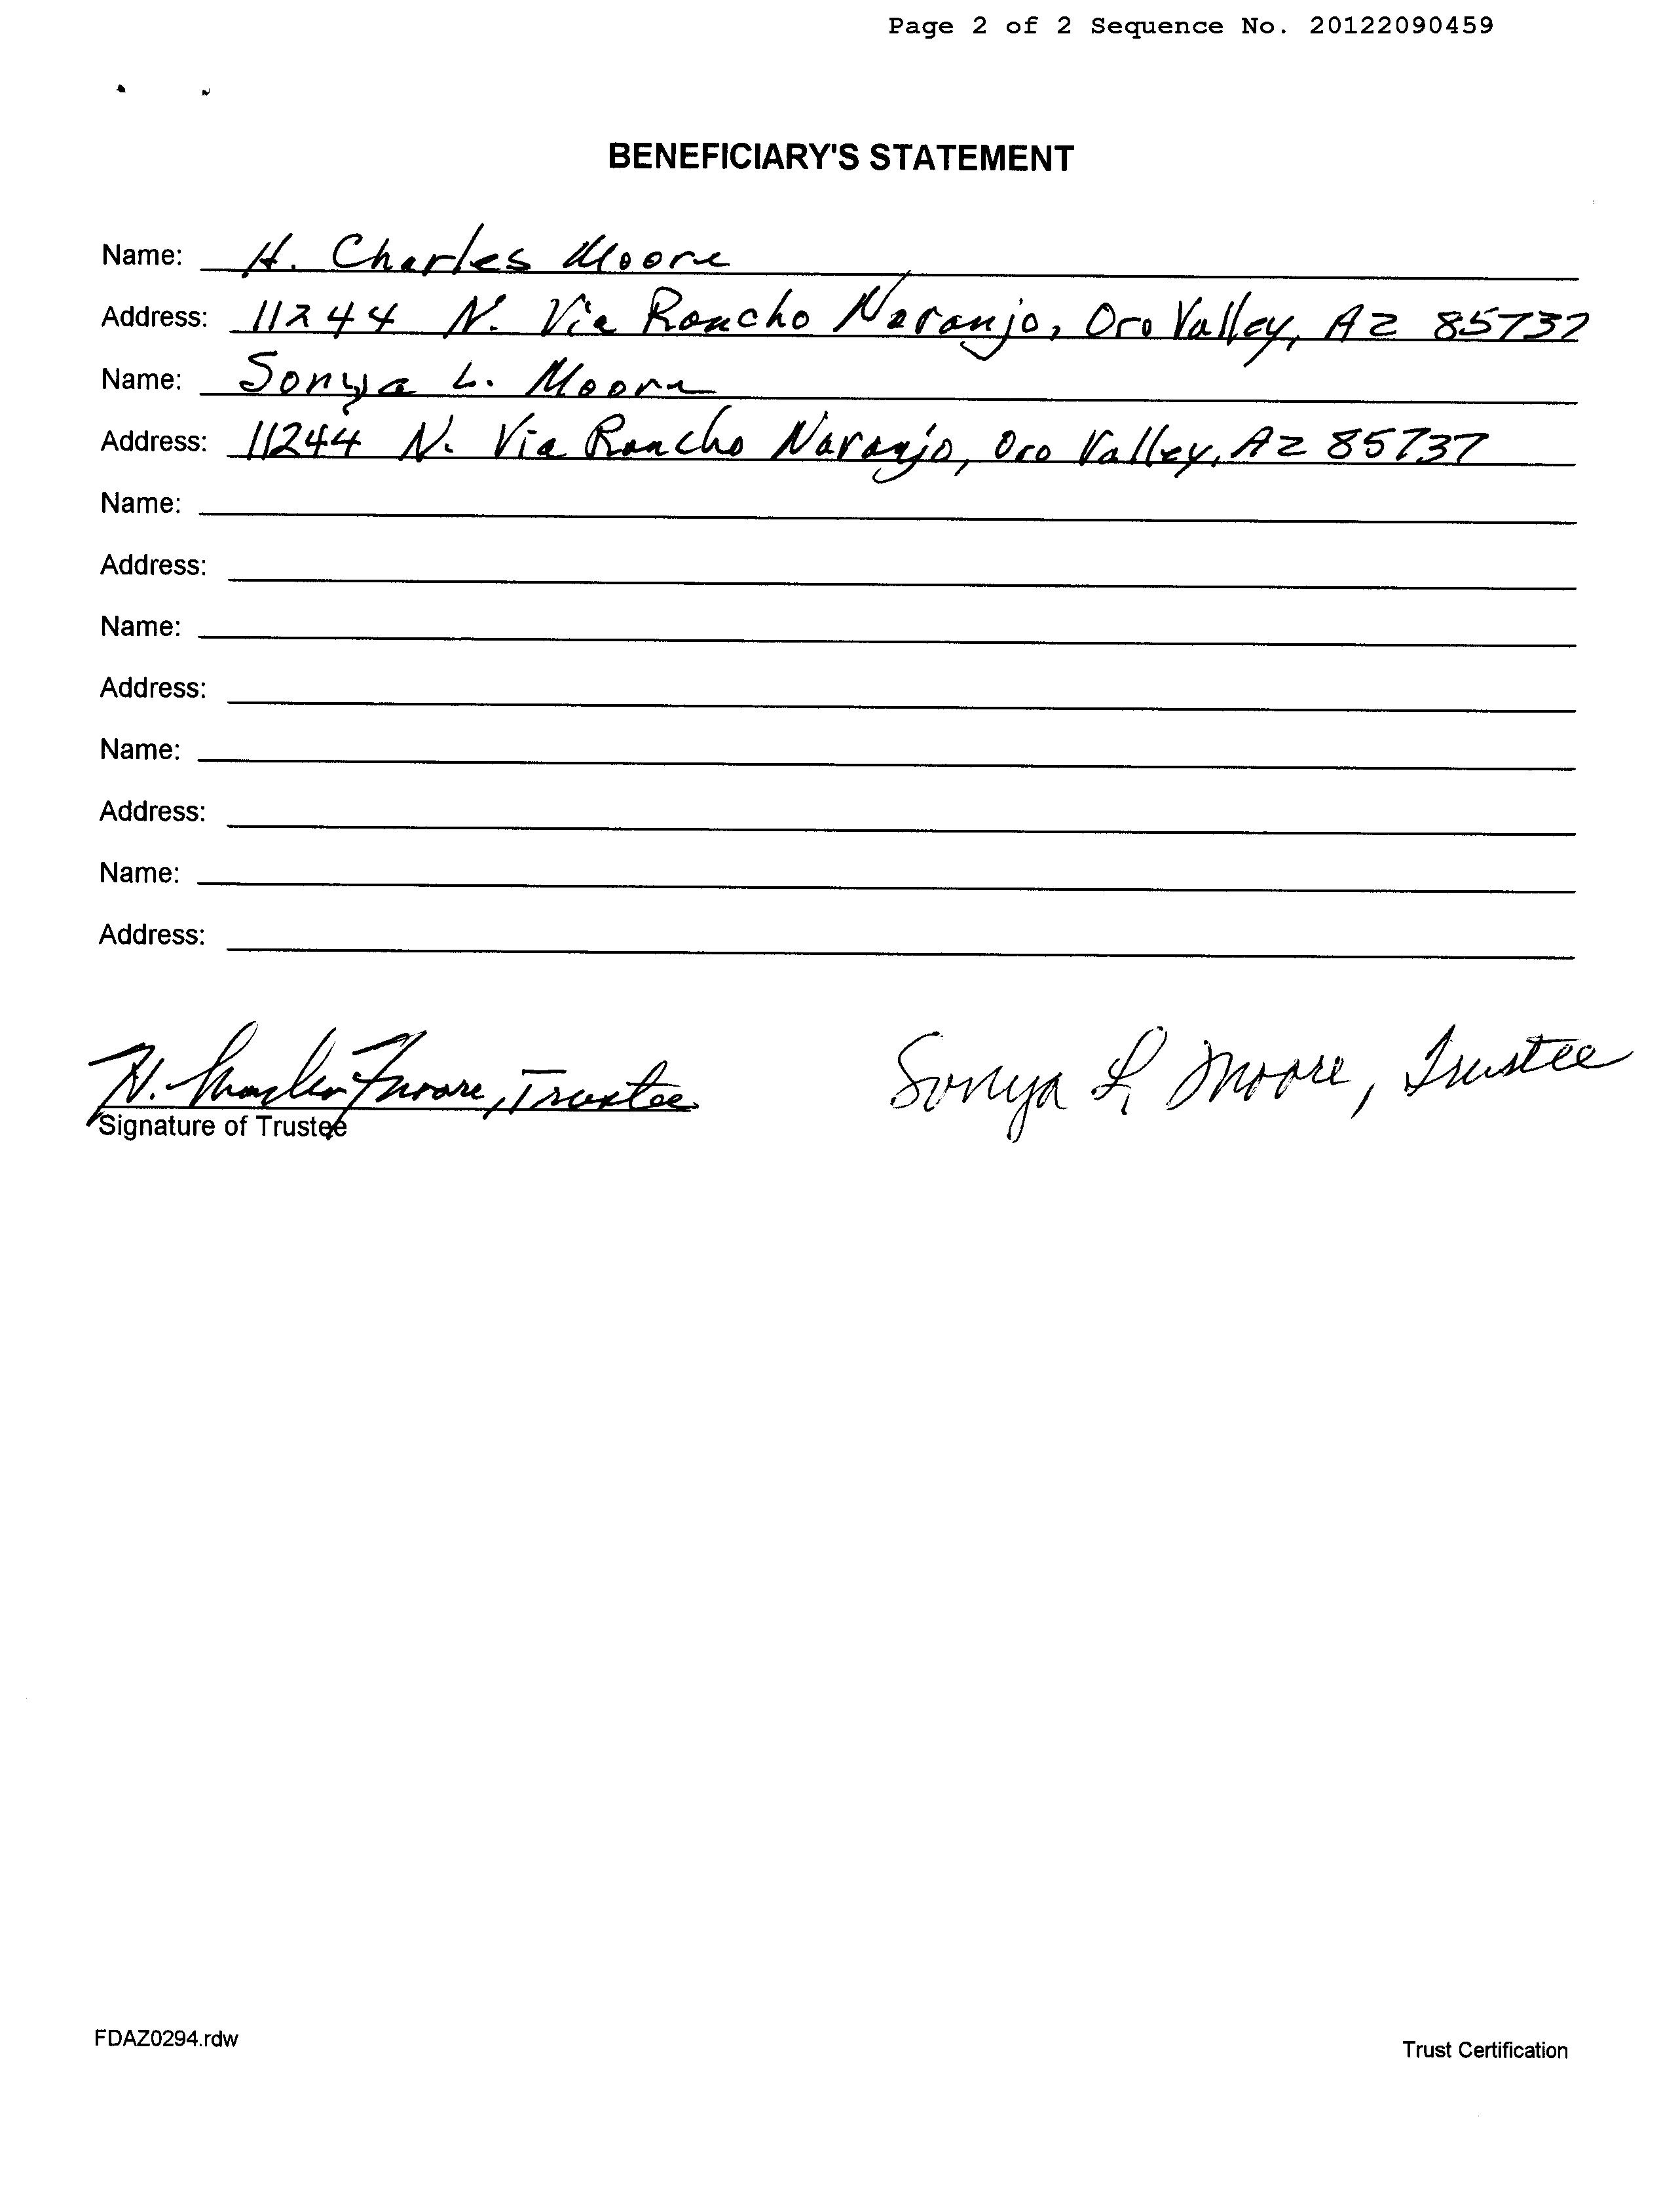 Page 2 of 2 Sequence No. 20122090459
BENEFICIARY'S STATEMENT
Name: H. Charles Moore
Address: 11244 N. Via Rancho Naranjo, Oro Valley, AZ 85737
Name: Sonya L. Moore
Address: 11244 N. Via Rancho Naranjo, Oro Valley, AZ 85737
Name:
Address:
Name:
Address:
Name:
Address:
Name:
Address:
H. Charles Moore, Trustee Sonya L. Moore, Trustee
Signature of Trustee
FDAZ0294.rdw
Trust Certification